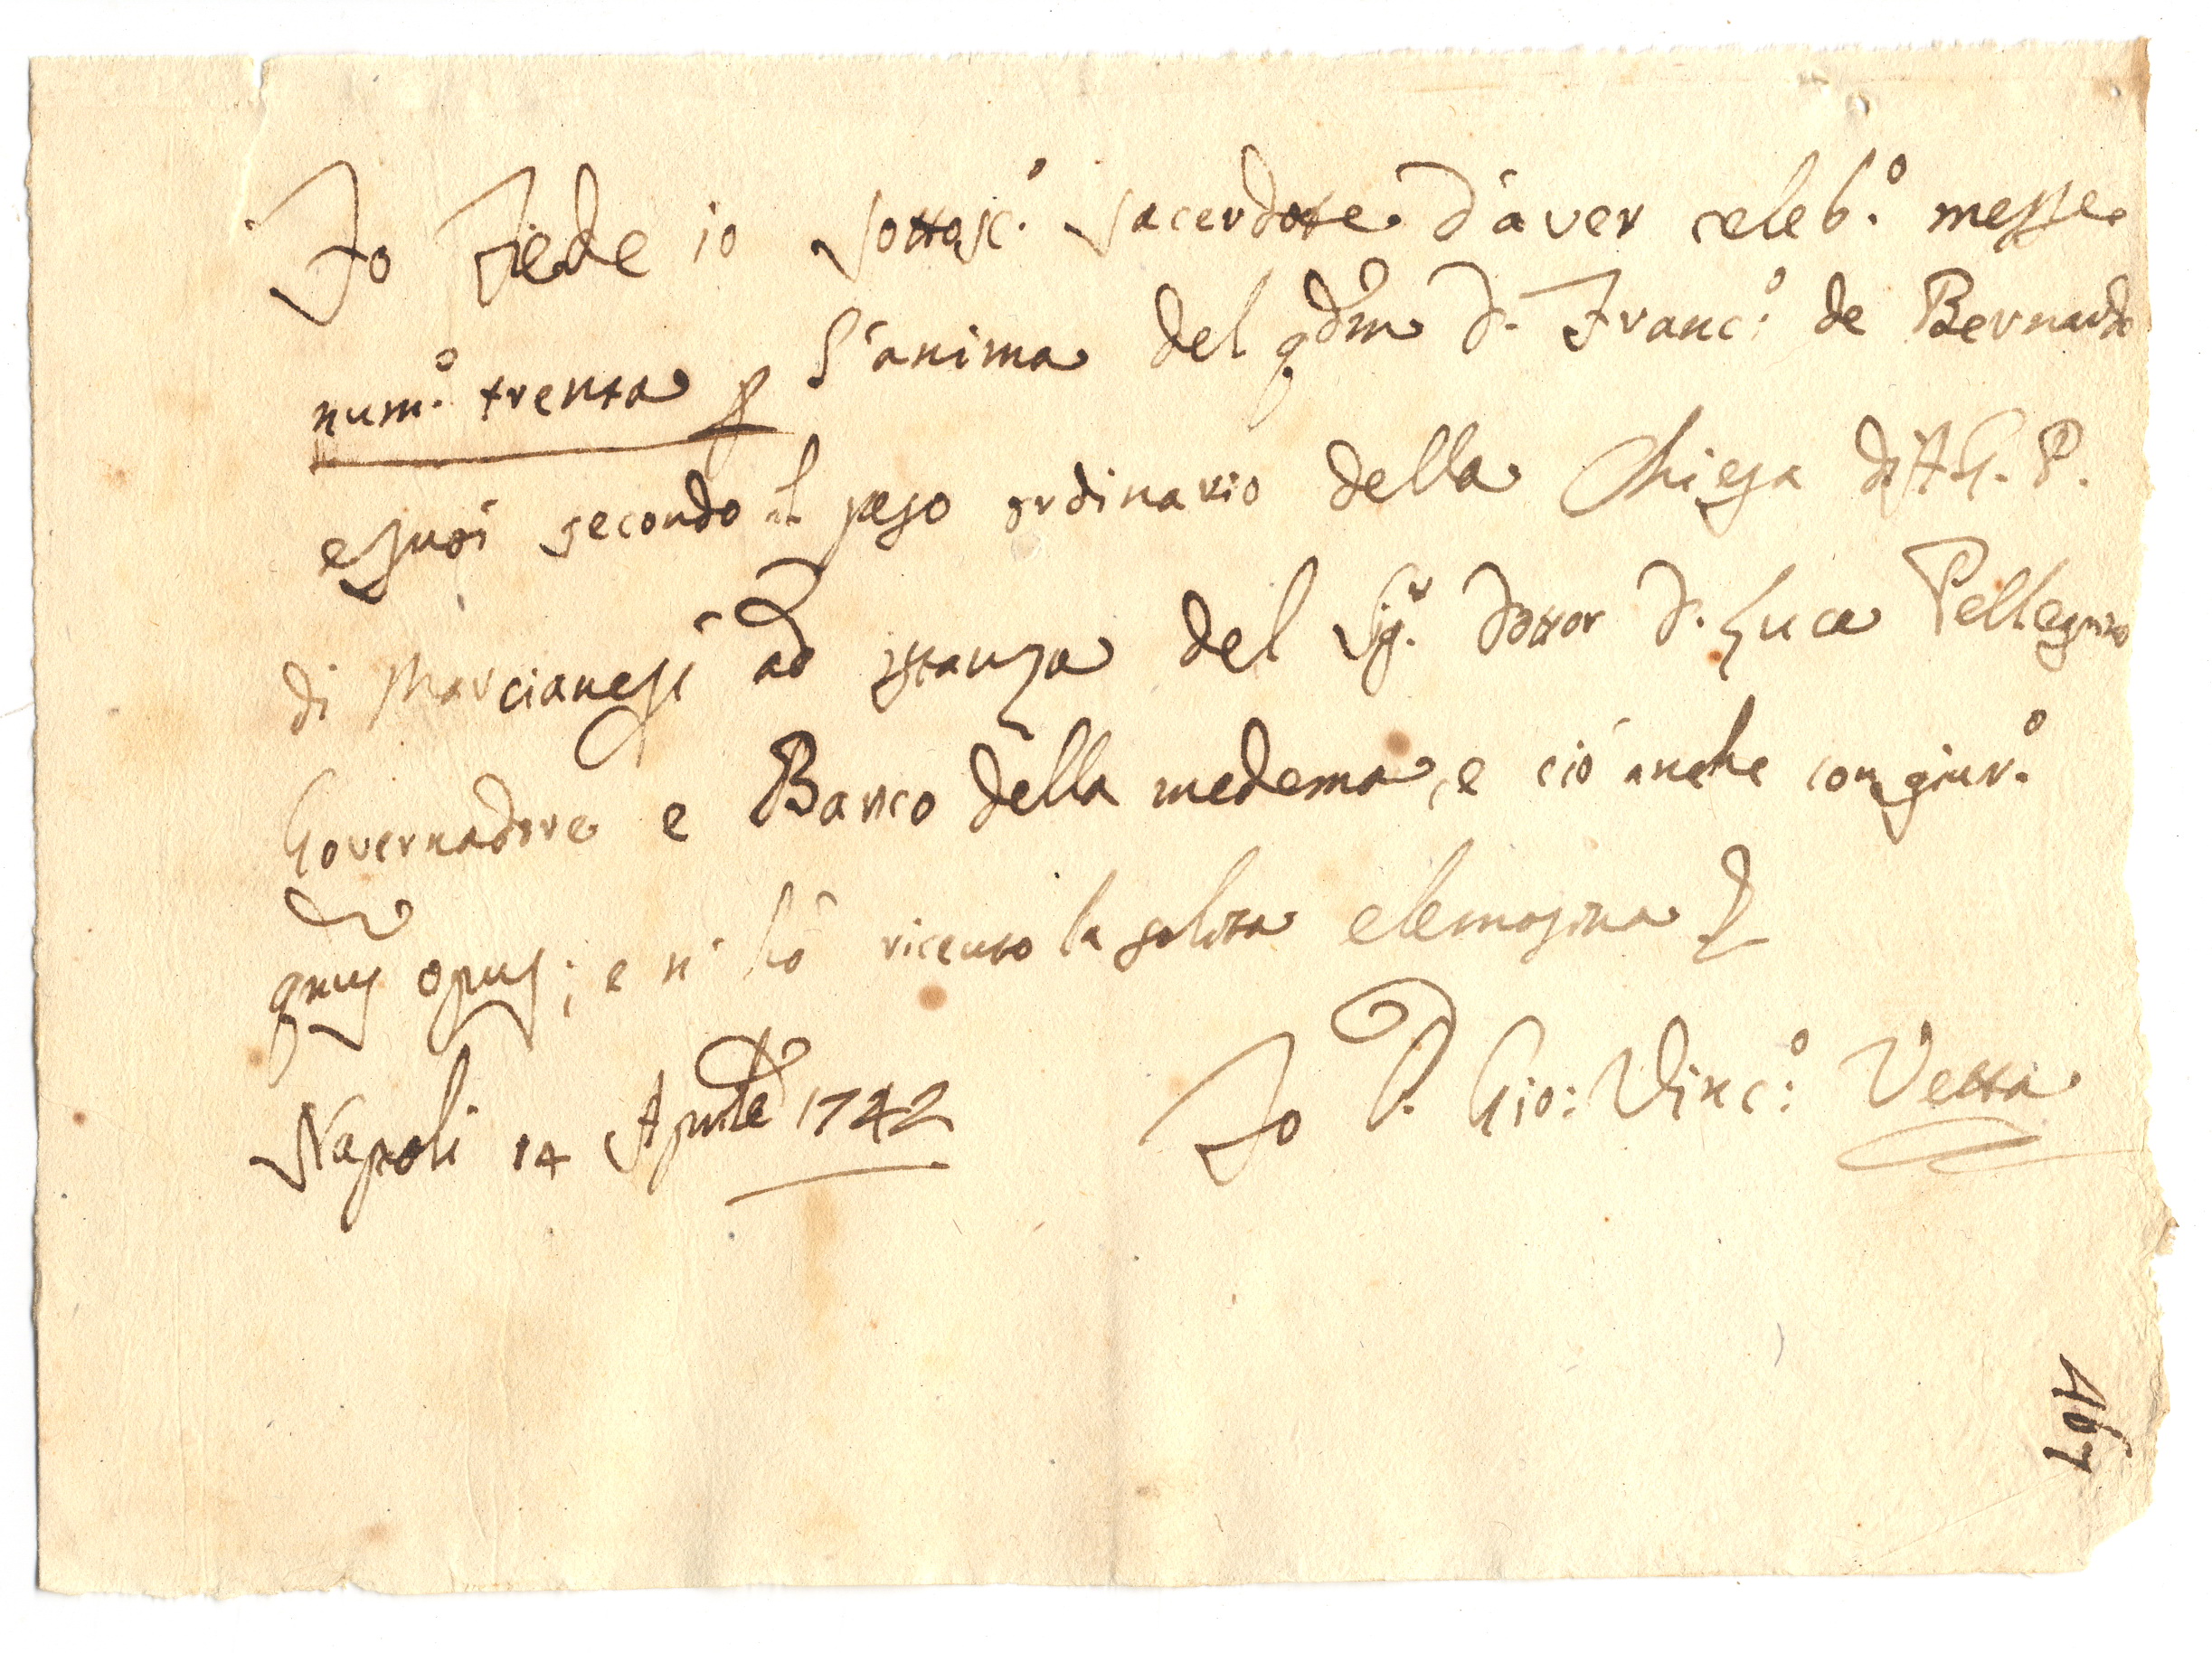 Fo Fede io sottosc.º sacerdote d'aver celeb.º messe
num.º trenta p l'anima del qdm D. Franc.º de Bernardo
e suoi secondo il peso ordinario della Chiesa di A. G. P.
di Marcianesi ad istanza del Sig.r Dottor D. Luca Pellegrino
Governadore e Banco della medema, e ciò anche con giur.º
opus; e n' hò riceuto la solita elemosina
Napoli 14 Aprile 1742 Io D. Gio: Vinc.º Vetta
467